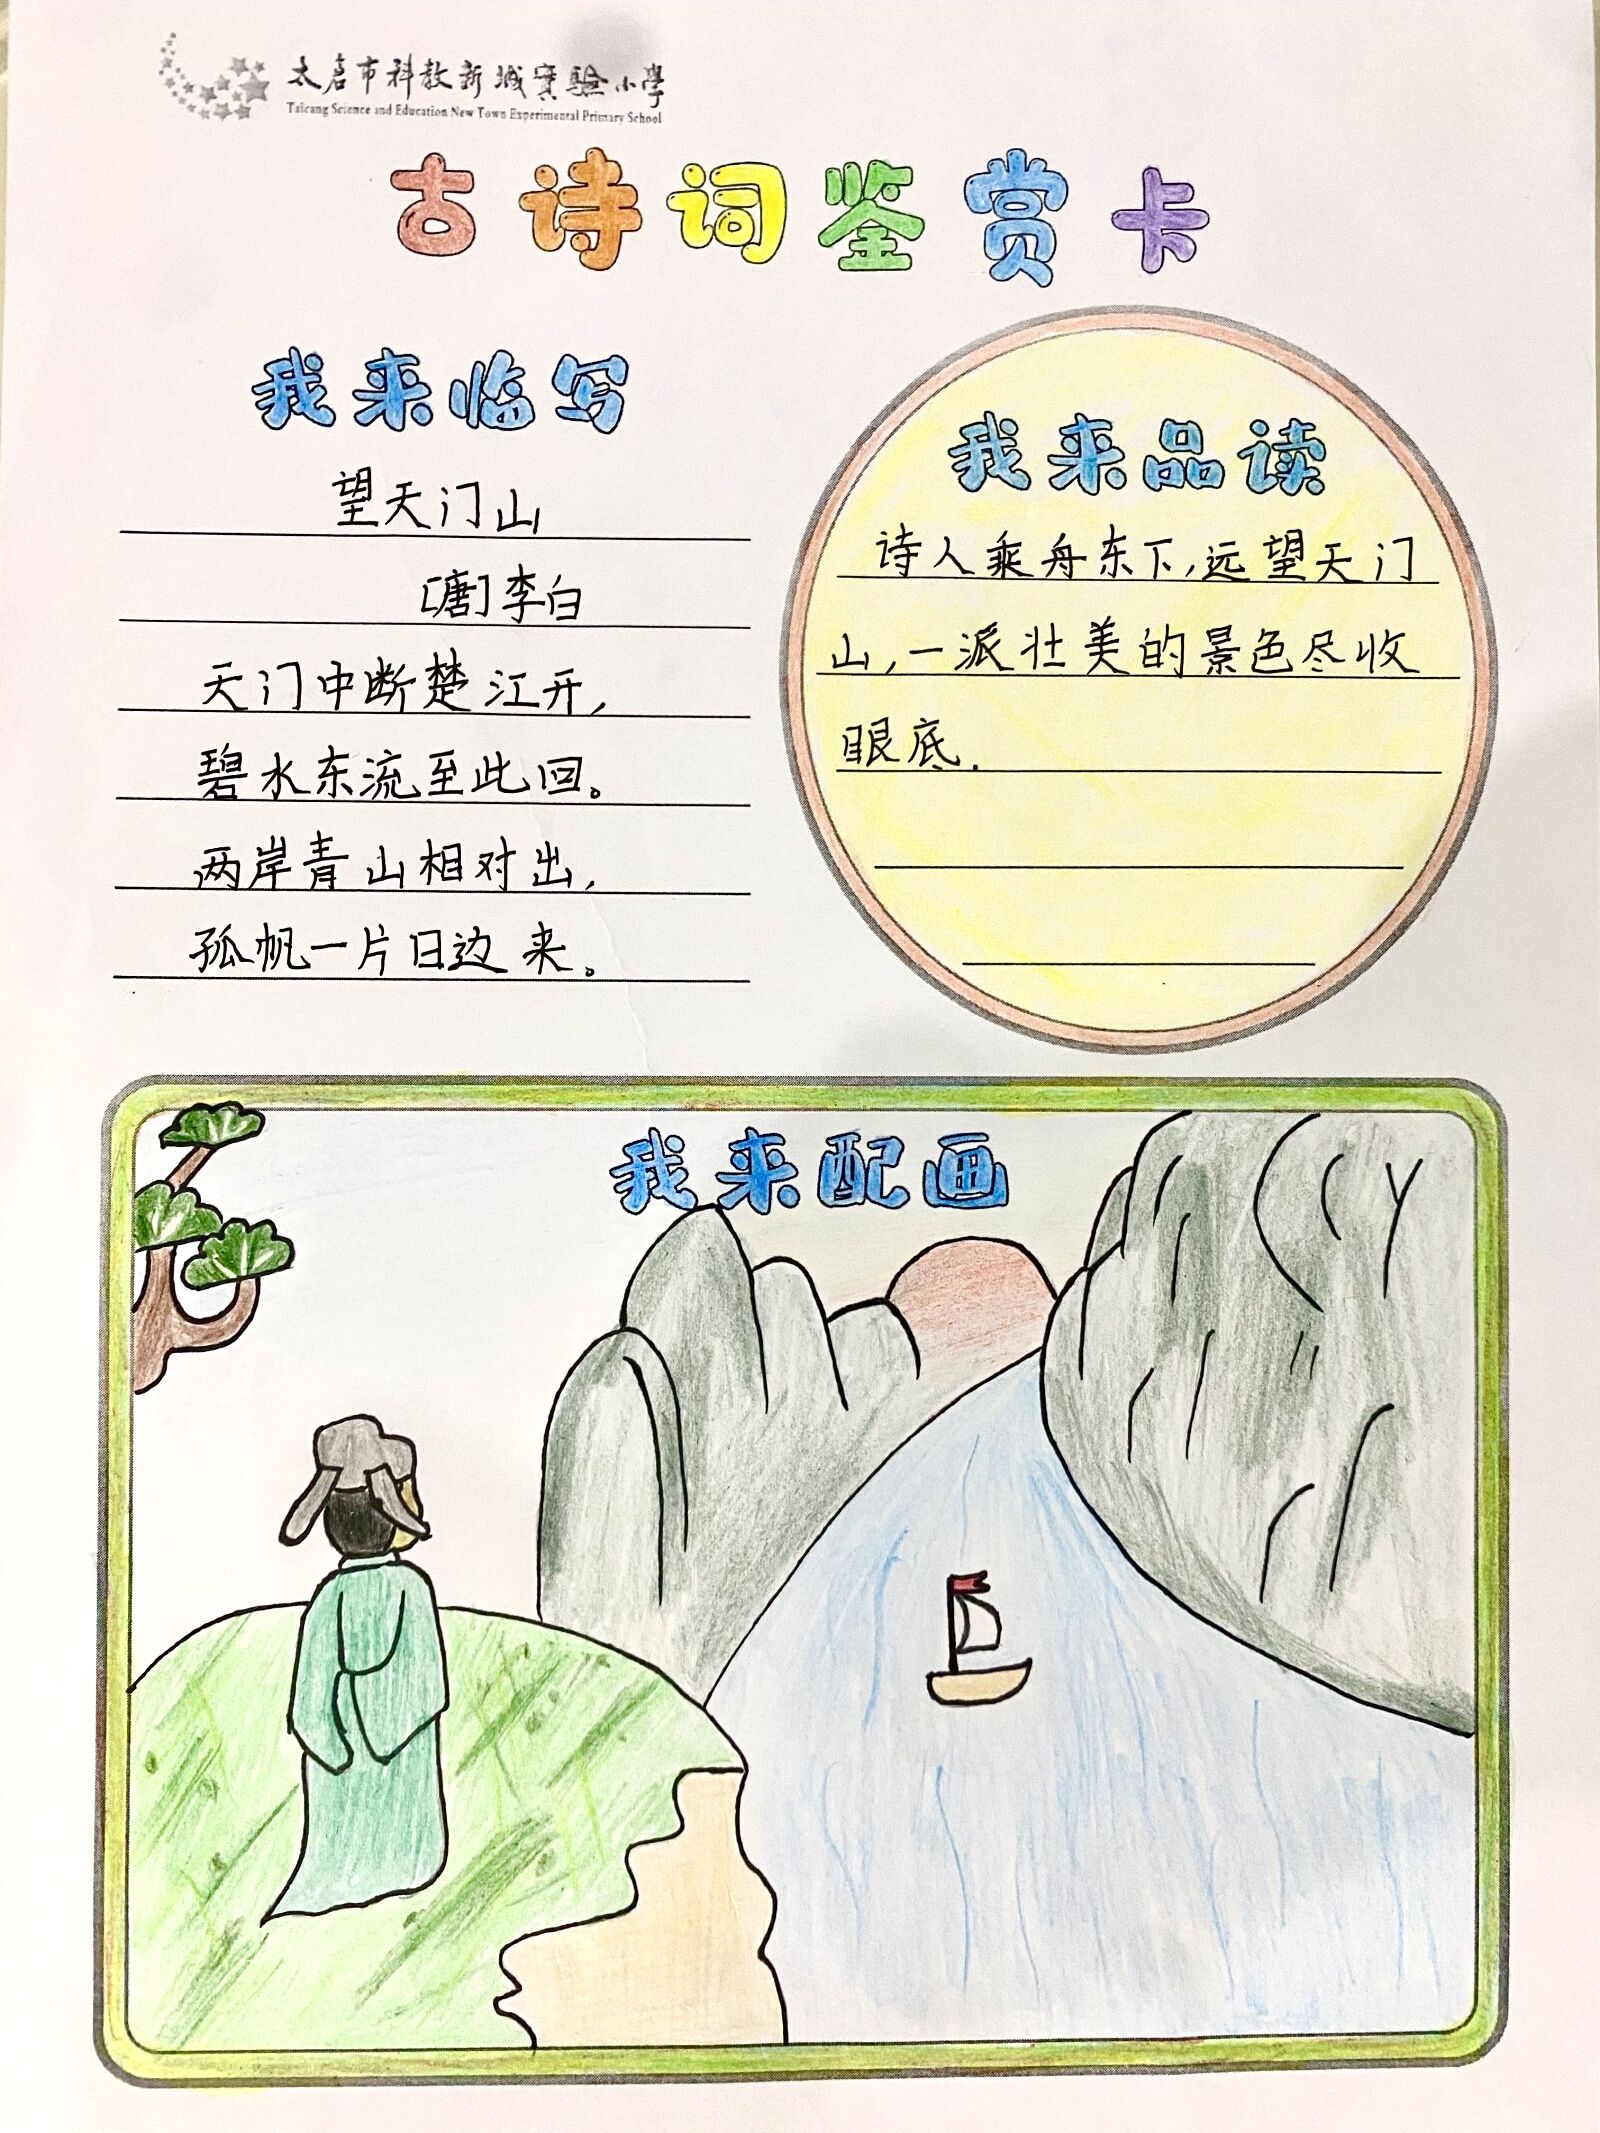 太仓市科教新城實驗小學
Taicang Science and Education New Town Experimental Primary School
古诗词鉴赏卡
我来临写
望天门山
[唐]李白
天门中断楚江开,
碧水东流至此回。
两岸青山相对出,
孤帆一片日边来。
我来品读
诗人乘舟东下,远望天门
山,一派壮美的景色尽收
眼底.
我来配画